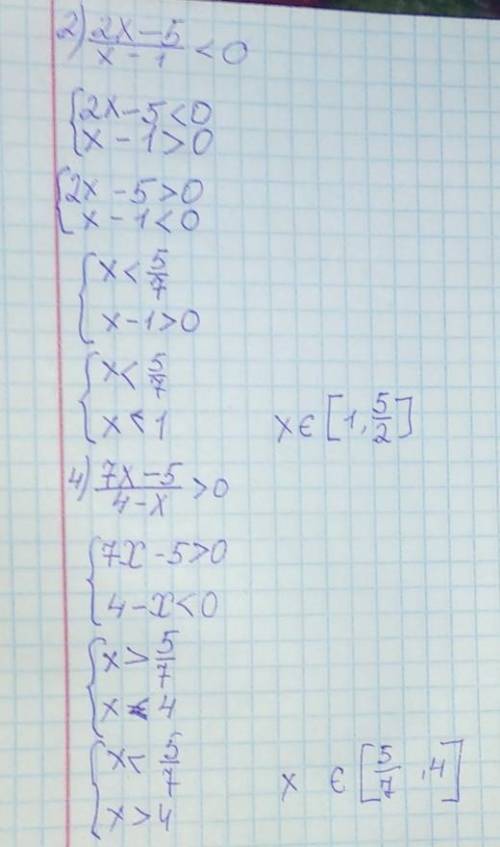 2) (2x-5)/(x-1) < 0
{2x-5<0
x-1>0
{2x-5>0
x-1<0
{x< 5/7
x-1>0
{x< 5/7
x<1
x∈[1, 5/2]
4) (7x-5)/(4-x) >0
{7x-5>0
4-x<0
{x> 5/7
x<4
{x< 5/7
x>4
x ∈ [5/7, 4]